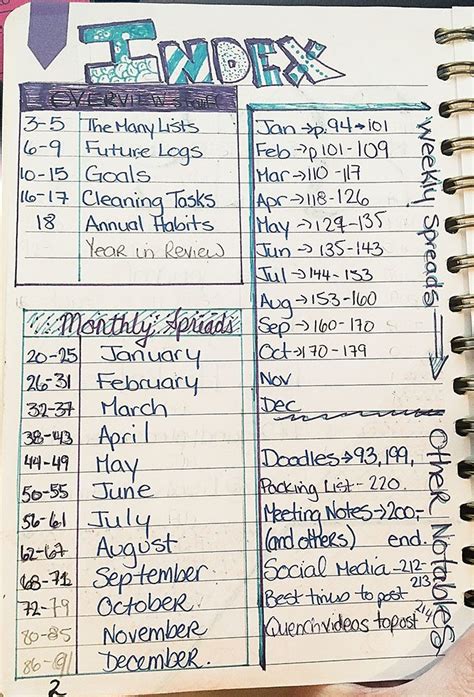 INDEX
OVERVIEW Stuff
3-5 The Many Lists
6-9 Future Logs
10-15 Goals
16-17 Cleaning Tasks
18 Annual Habits
Year in Review
Monthly Spreads
20-25 January
26-31 February
32-37 March
38-43 April
44-49 May
50-55 June
56-61 July
62-67 August
68-71 September
72-79 October
80-85 November
86-91 December
2
Weekly Spreads →
Jan → p.94 → 101
Feb → p101 - 109
Mar → 110 - 117
Apr → 118 - 126
May → 127 - 135
Jun → 135 - 143
Jul → 144 - 153
Aug → 153 - 160
Sep → 160 - 170
Oct → 170 - 179
Nov
Dec
Other Notables
Doodles → 93, 199,
Packing List - 220
Meeting Notes → 200-
(and others) end.
Social Media - 212
Best times to post 213
Quench videos to post 214